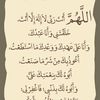 اللَّهُمَّ أَنْتَ رَبِّي لَا إِلَهَ إِلَّا أَنْتَ
خَلَقْتَنِي وَأَنَا عَبْدُكَ
وَأَنَا عَلَى عَهْدِكَ وَوَعْدِكَ مَا اسْتَطَعْتُ
أَعُوذُ بِكَ مِنْ شَرِّ مَا صَنَعْتُ
أَبُوءُ لَكَ بِنِعْمَتِكَ عَلَيَّ
وَأَبُوءُ لَكَ بِذَنْبِي فَاغْفِرْ لِي